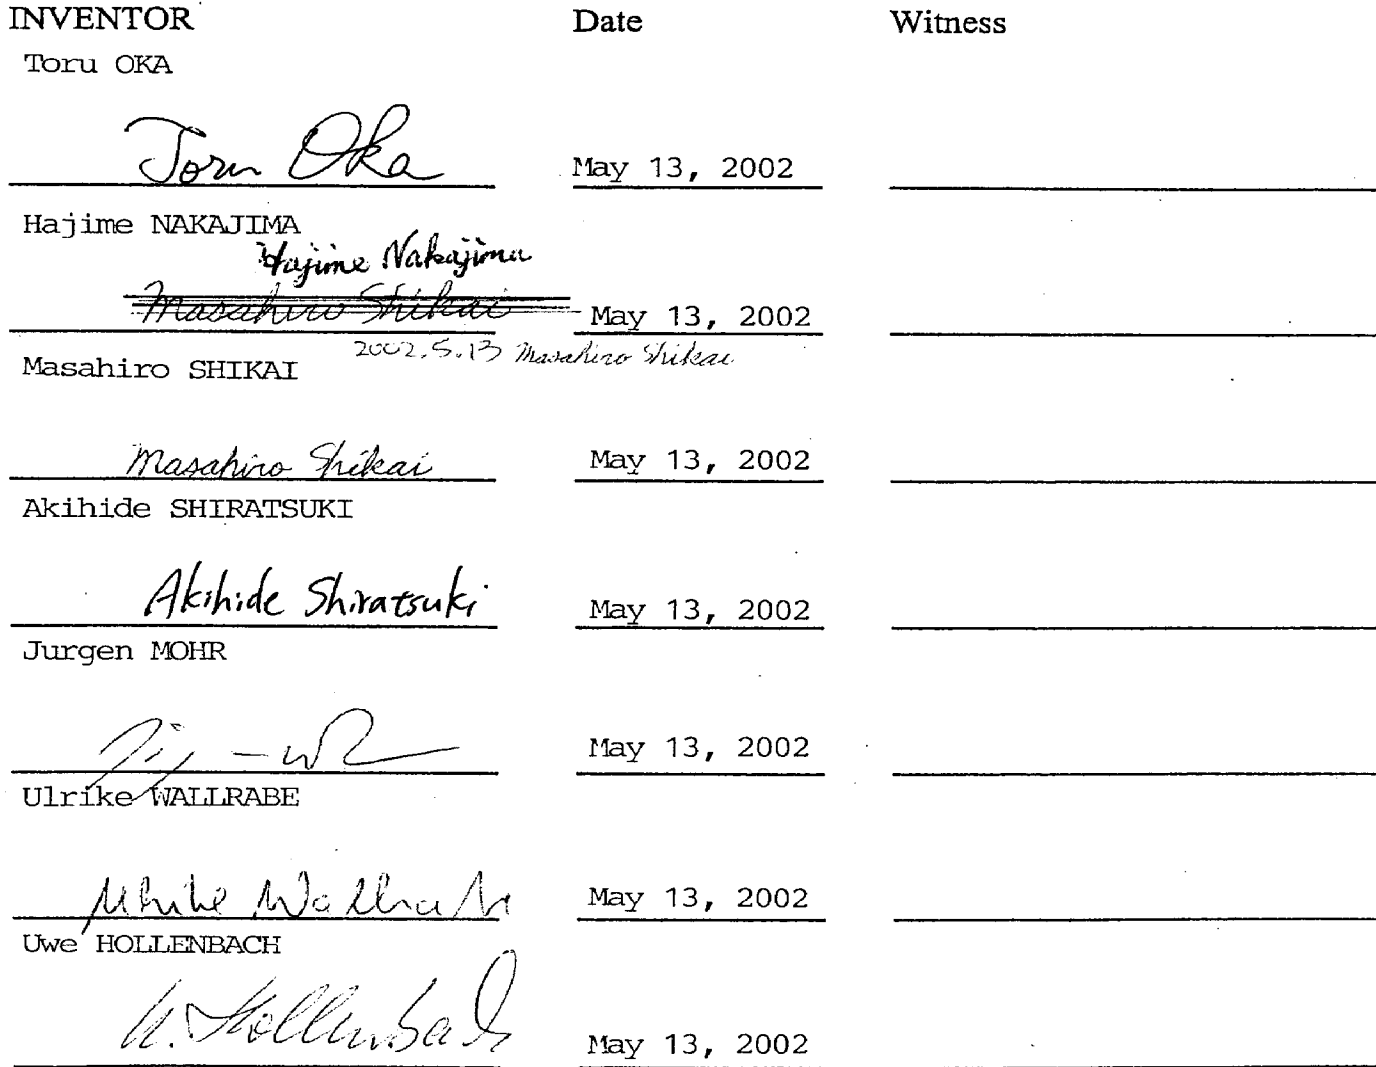 INVENTOR Date Witness
Toru OKA
Toru Oka May 13, 2002
Hajime NAKAJIMA
Hajime Nakajima
Masahiro Shikai May 13, 2002
2002.5.13 Masahiro Shikai
Masahiro SHIKAI
Masahiro Shikai May 13, 2002
Akihide SHIRATSUKI
Akihide Shiratsuki May 13, 2002
Jurgen MOHR
May 13, 2002
Ulrike WALLRABE
Ulrike Wallrabe May 13, 2002
Uwe HOLLENBACH
U. Hollenbach May 13, 2002